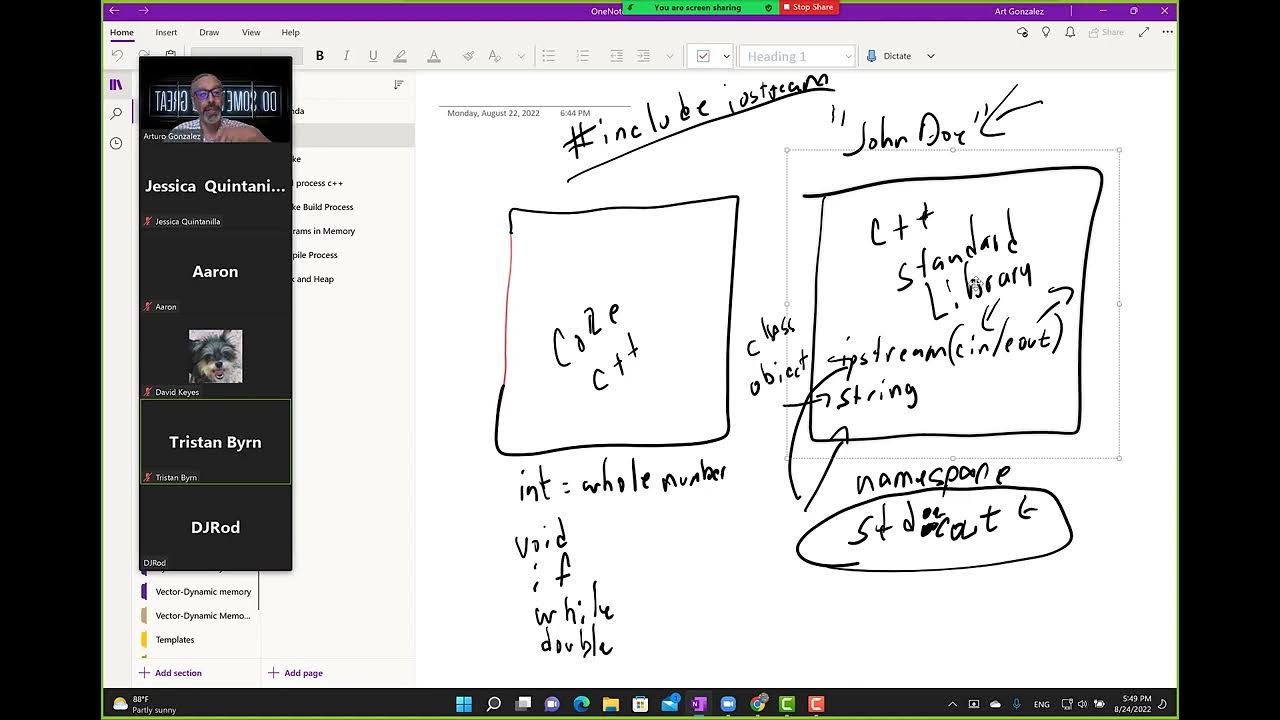 OneNot
You are screen sharing
Stop Share
Art Gonzalez
Home Insert Draw View Help
Share
B I U A
Heading 1
Dictate
DO SOMETHING GREAT
Arturo Gonzalez
Jessica Quintani...
Jessica Quintanilla
Aaron
Aaron
David Keyes
Tristan Byrn
Tristan Byrn
DJRod
DJRod
nda
ke
l process c++
ke Build Process
rams in Memory
pile Process
k and Heap
Vector-Dynamic memory
Vector-Dynamic Memo...
Templates
Add section
Add page
Monday, August 22, 2022 6:44 PM
#include iostream
"John Doe"
Core
C++
int = whole number
void
if
while
double
class
object
C++
Standard
Library
iostream(cin/cout)
string
namespane
std::cout
88°F
Partly sunny
ENG
5:49 PM
8/24/2022